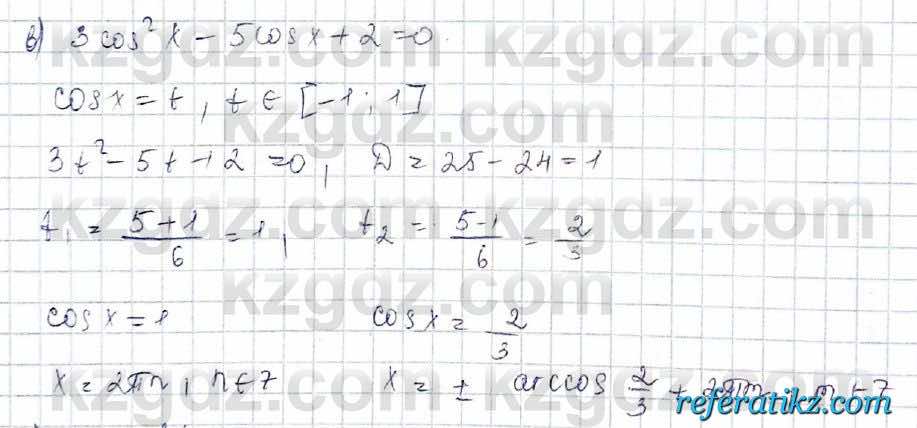 в) 3 cos² x - 5 cos x + 2 = 0
cos x = t, t ∈ [-1; 1]
3t² - 5t + 2 = 0, D = 25 - 24 = 1
t₁ = (5+1)/6 = 1, t₂ = (5-1)/6 = 2/3
cos x = 1 cos x = 2/3
x = 2πn, n ∈ Z x = ± arccos 2/3 + 2πn, n ∈ Z
kzgdz.com
referatikz.com